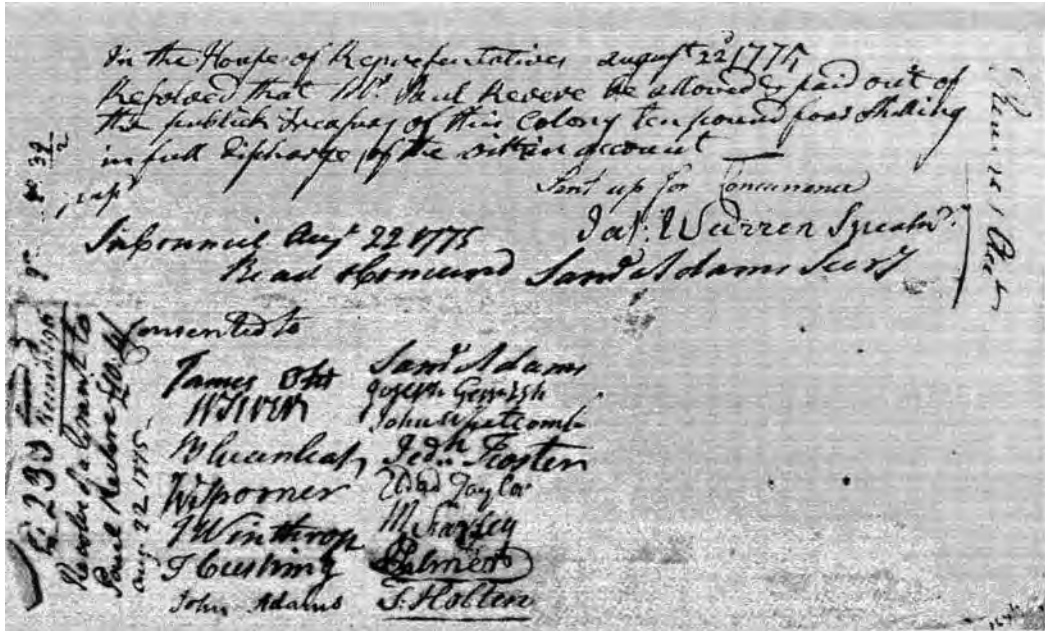 In the House of Representatives august 22d 1775
Resolved that Mr Paul Revere be allowed & paid out of
the publick treasury of this Colony ten pound four Shilling
in full discharge of the within account
Sent up for Concurrence
Jas: Warren Speakr
In Council Augt 22 1775
Read & Concurd Saml Adams Secry
Consented to
James Otis
W Sever
B Greenleaf
W Spooner
J Winthrop
T Cushing
John Adams
Saml Adams
Joseph Gerrish
John Whetcomb
Jedh Foster
Eldad Taylor
M Farley
J Palmer
S. Holten
239
Resolve of a Grant to
Paul Revere
Aug. 22 1775